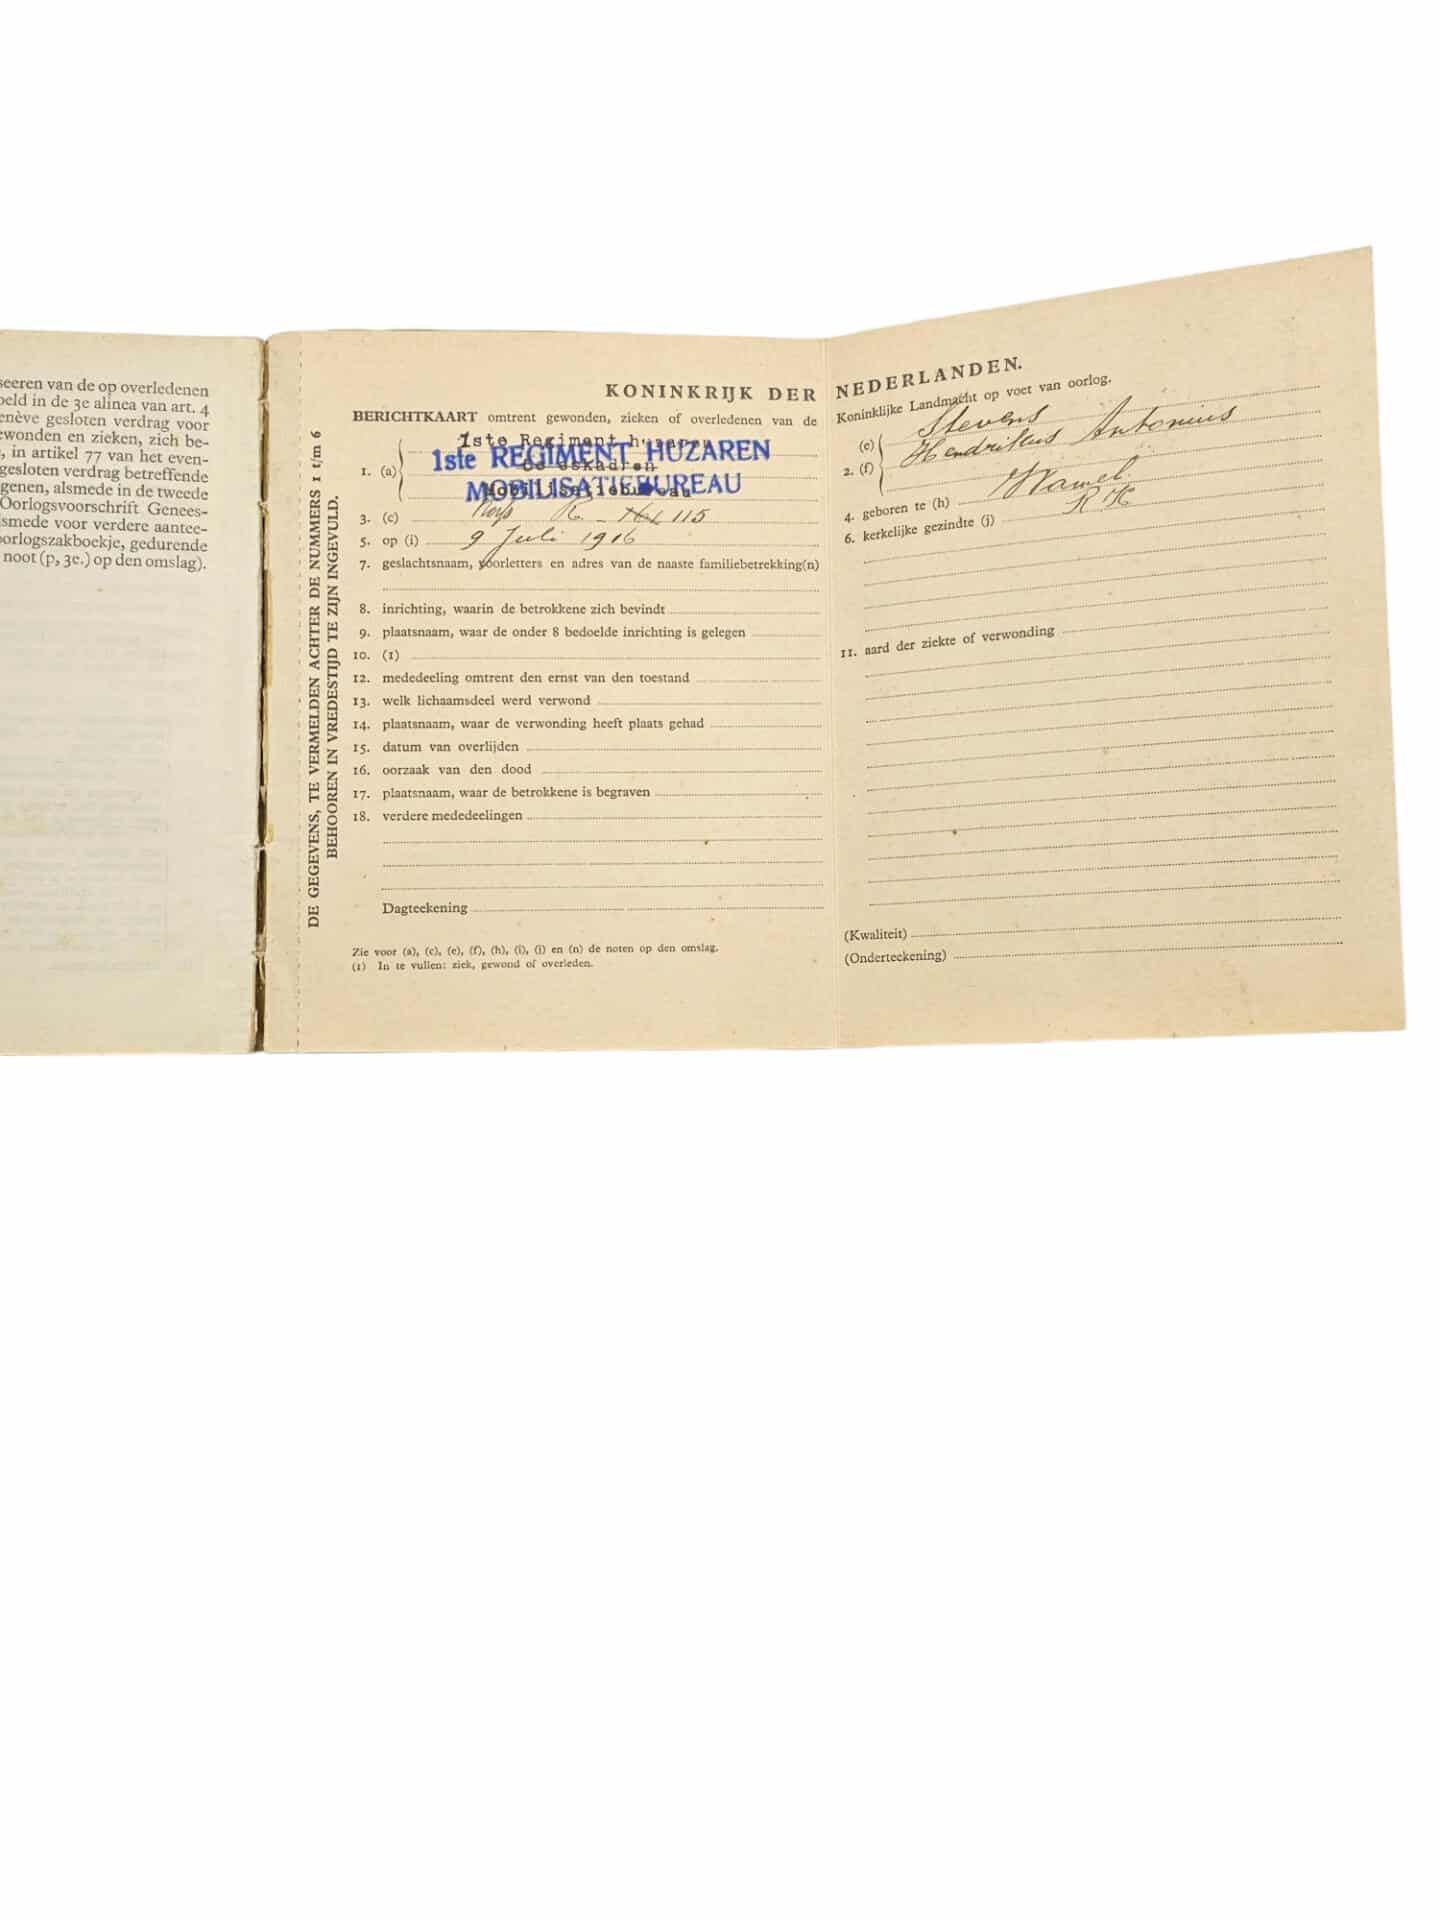 seeren van de op overledenen
oeld in de 3e alinea van art. 4
enève gesloten verdrag voor
ewonden en zieken, zich be-
, in artikel 77 van het even-
gesloten verdrag betreffende
genen, alsmede in de tweede
Oorlogsvoorschrift Genees-
smede voor verdere aantee-
oorlogszakboekje, gedurende
noot (p, 3e.) op den omslag).
DE GEGEVENS, TE VERMELDEN ACHTER DE NUMMERS 1 t/m 6
BEHOOREN IN VREDESTIJD TE ZIJN INGEVULD.
KONINKRIJK DER NEDERLANDEN.
BERICHTKAART omtrent gewonden, zieken of overledenen van de Koninklijke Landmacht op voet van oorlog.
1ste Regiment huzaren
1. (a)
1ste REGIMENT HUZAREN
eskadron
MOBILISATIEBUREAU
Mobilisatiebureau
3. (c) R 115
5. op (i) 9 Juli 1916
7. geslachtsnaam, voorletters en adres van de naaste familiebetrekking(n)
8. inrichting, waarin de betrokkene zich bevindt
9. plaatsnaam, waar de onder 8 bedoelde inrichting is gelegen
10. (1)
12. mededeeling omtrent den ernst van den toestand
13. welk lichaamsdeel werd verwond
14. plaatsnaam, waar de verwonding heeft plaats gehad
15. datum van overlijden
16. oorzaak van den dood
17. plaatsnaam, waar de betrokkene is begraven
18. verdere mededeelingen
Dagteekening
Zie voor (a), (c), (e), (f), (h), (i), (j) en (n) de noten op den omslag.
(1) In te vullen: ziek, gewond of overleden.
(e) Stevens
2. (f) Hendrikus Antonius
4. geboren te (h) Wamel
6. kerkelijke gezindte (j) R K
11. aard der ziekte of verwonding
(Kwaliteit)
(Onderteekening)